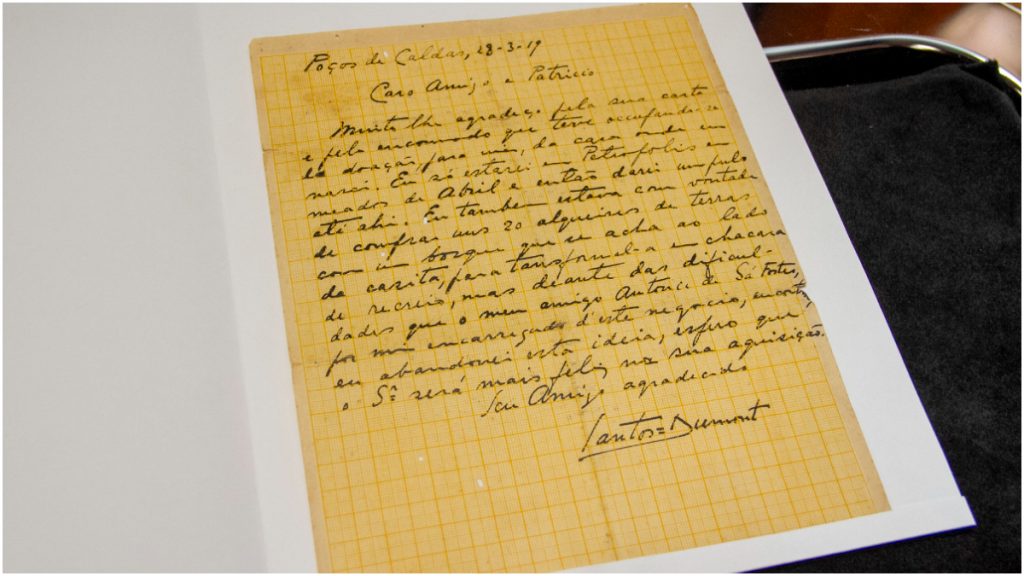 Poços de Caldas, 28-3-19
Caro Amigo e Patricio
Muito lhe agradeço pela sua carta
e pelo encommodo que teve occupando-se
da doação, para mim, da casa onde eu
nasci. Eu só estarei em Petropolis em
meados de Abril e então darei um pulo
até ahi. Eu tambem estava com vontade
de comprar uns 20 alqueires de terras
com um bosque que se acha ao lado
da casita, para transformal-a em chacara
de recreio, mas deante das dificul-
dades que o meu amigo Antonio de Sá Fortes,
por mim encarregado d'este negocio, encontrou,
eu abandonei esta ideia, espero que
o Sr. será mais feliz na sua aquisição.
Seu Amigo agradecido
Santos=Dumont